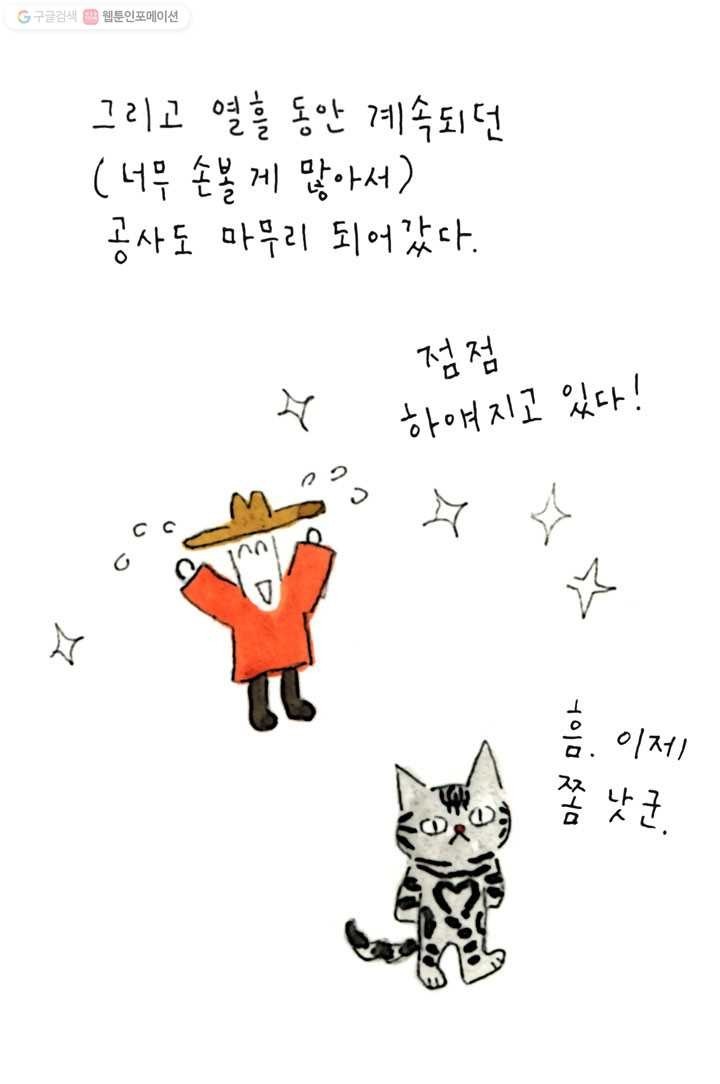 구글검색 웹툰인포메이션
그리고 열흘 동안 계속되던
(너무 손볼 게 많아서)
공사도 마무리 되어갔다.
점점
하얘지고 있다!
흠. 이제
쫌 낫군.